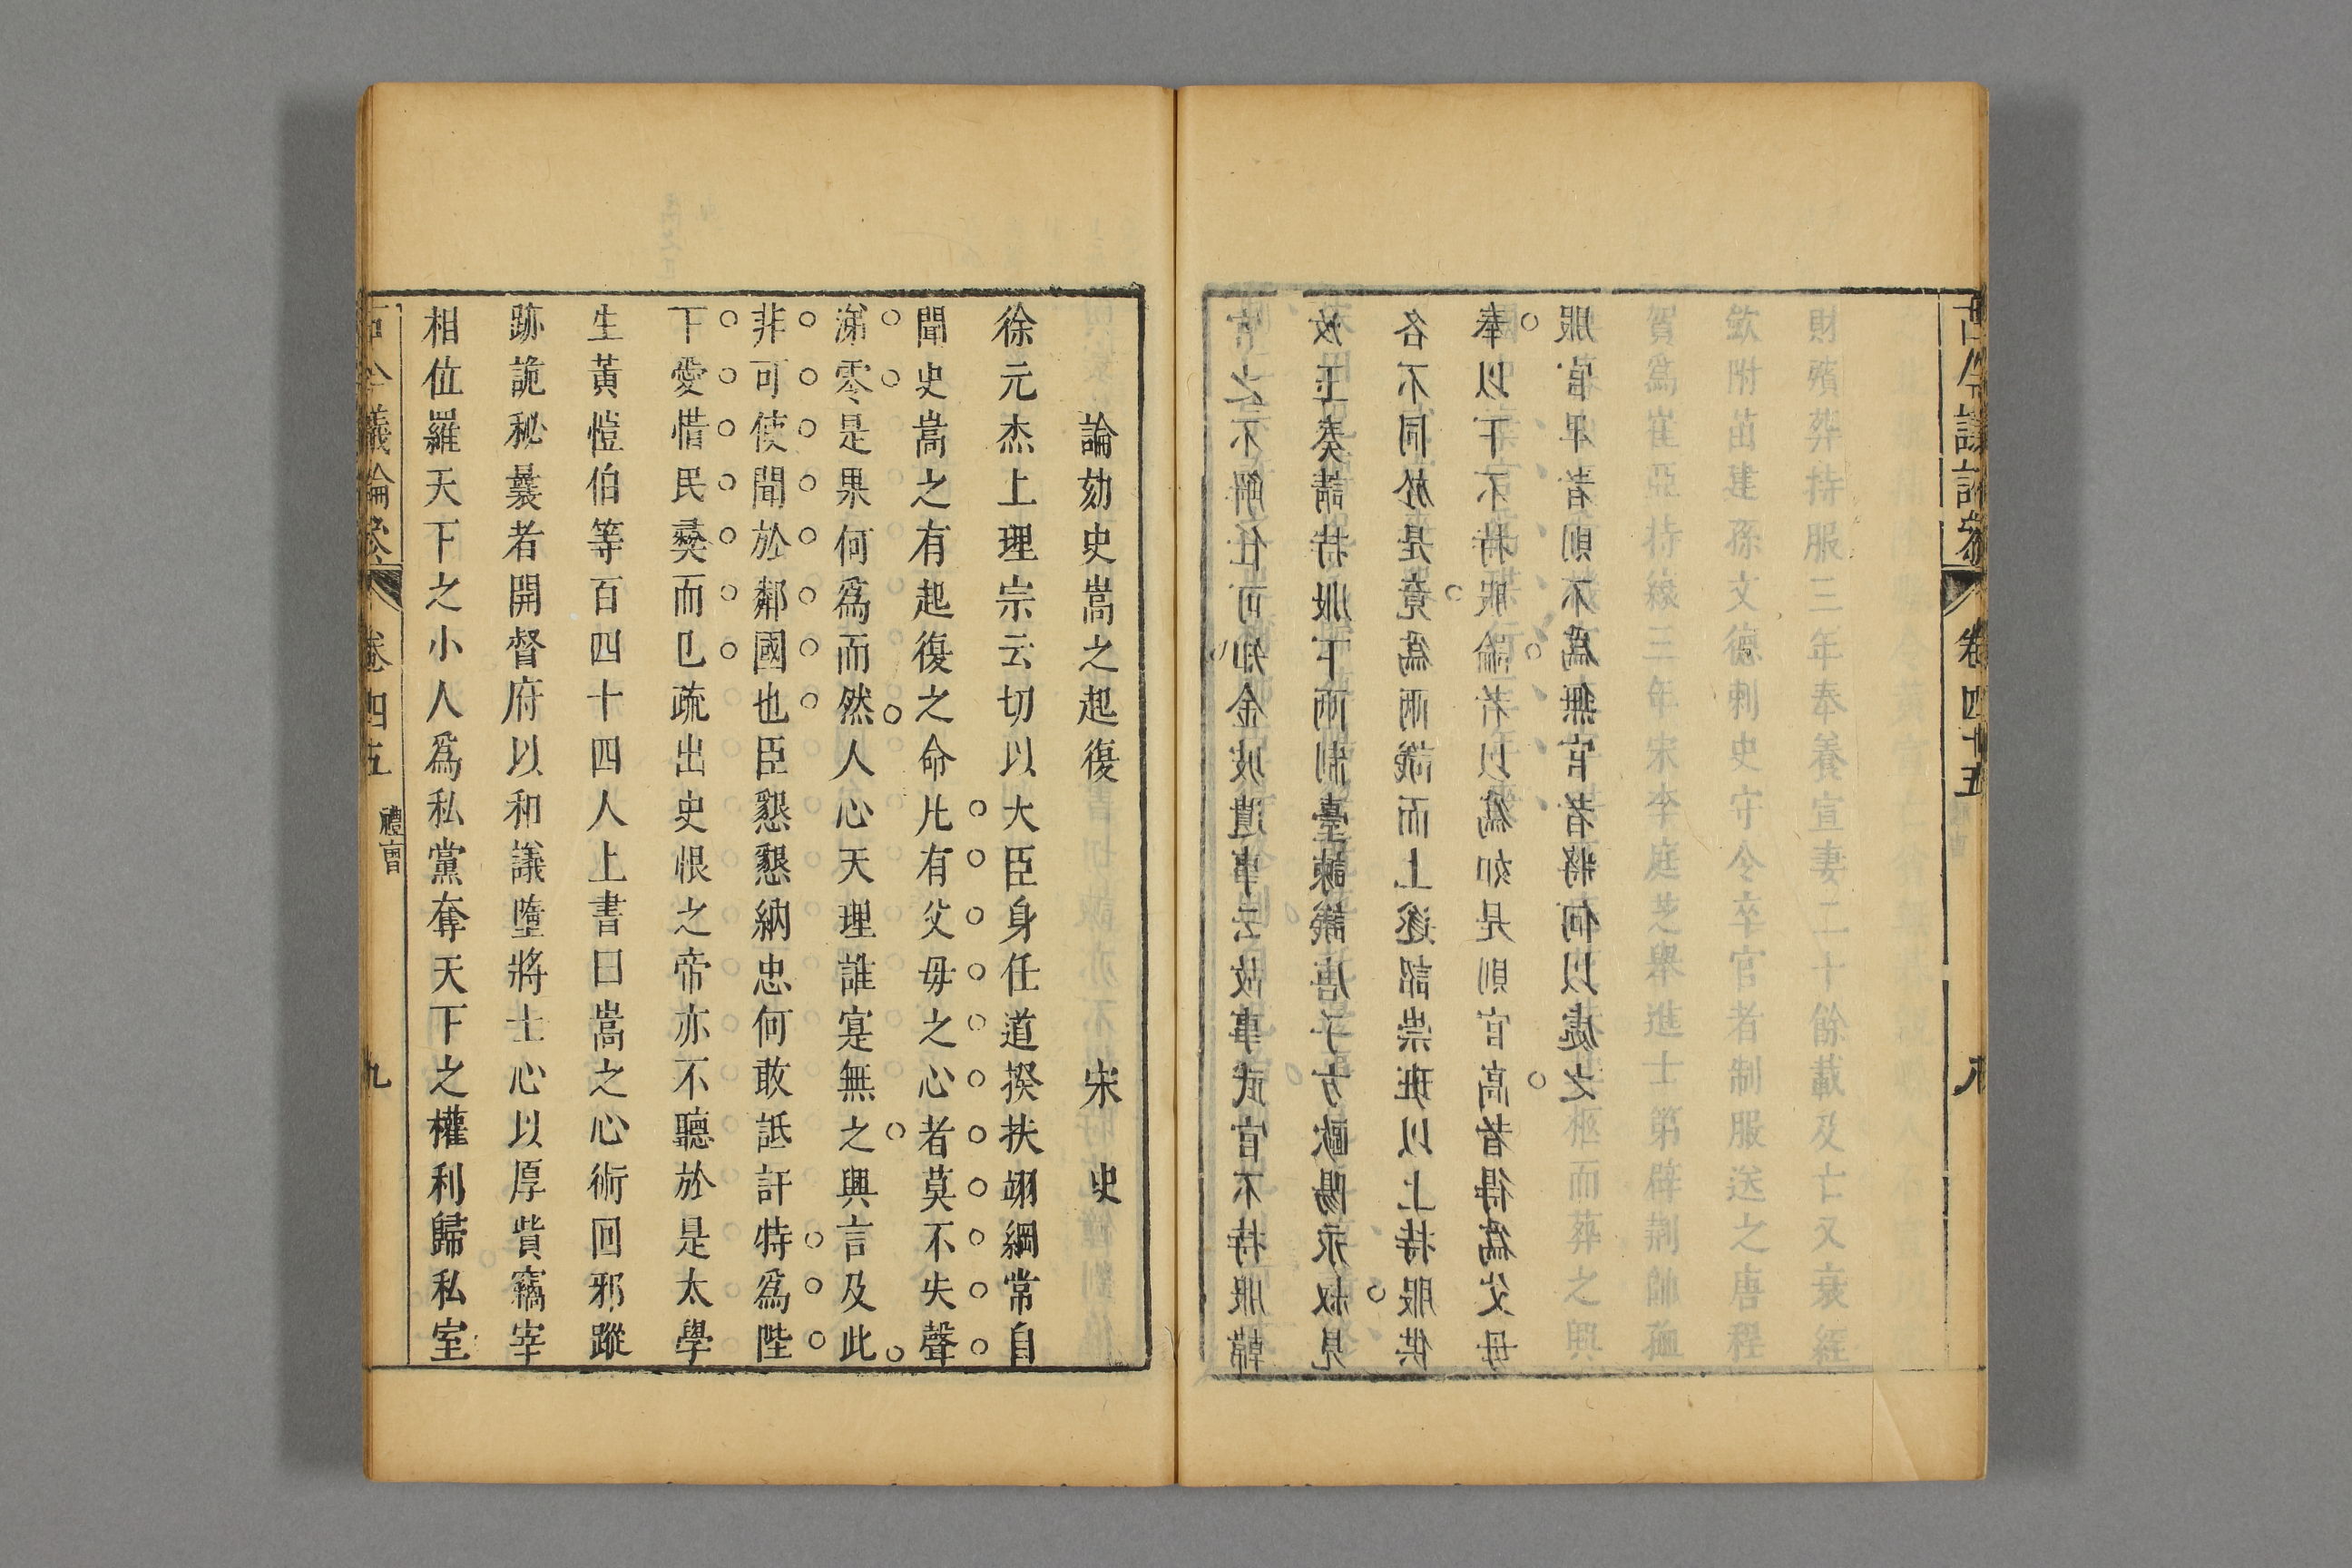 古今議論參 卷四十五 八
財殯葬持服三年奉養宣妻二十餘載及亡又衰絰
歛附苗建孫文德刺史守令卒官者制服送之唐程
賀爲崔亞持緌三年宋李庭芝舉進士第辟荊帥
柩而葬之興
常之不解任可知金坡遺事云故事武官不持服韓
汝玉奏請持服下兩制臺諫議唐子方歐陽永叔見
各不同於是竟爲兩議而上遂詔崇班以上持服供
奉以下不持服論者以爲如是則官高者得爲父母
服官卑者則不爲無官者將何以處之
論劾史嵩之起復 宋史
徐元杰上理宗云切以大臣身任道揆扶翊綱常自
聞史嵩之有起復之命凡有父母之心者莫不失聲
涕零是果何爲而然人心天理誰寔無之興言及此
非可使聞於鄰國也臣懇懇納忠何敢詆訐特爲陛
下愛惜民彝而已疏出史恨之帝亦不聽於是太學
生黃愷伯等百四十四人上書曰嵩之心術回邪蹤
跡詭秘曩者開督府以和議墮將士心以厚貲竊宰
相位羅天下之小人爲私黨奪天下之權利歸私室
古今議論參 卷四五 禮會 九